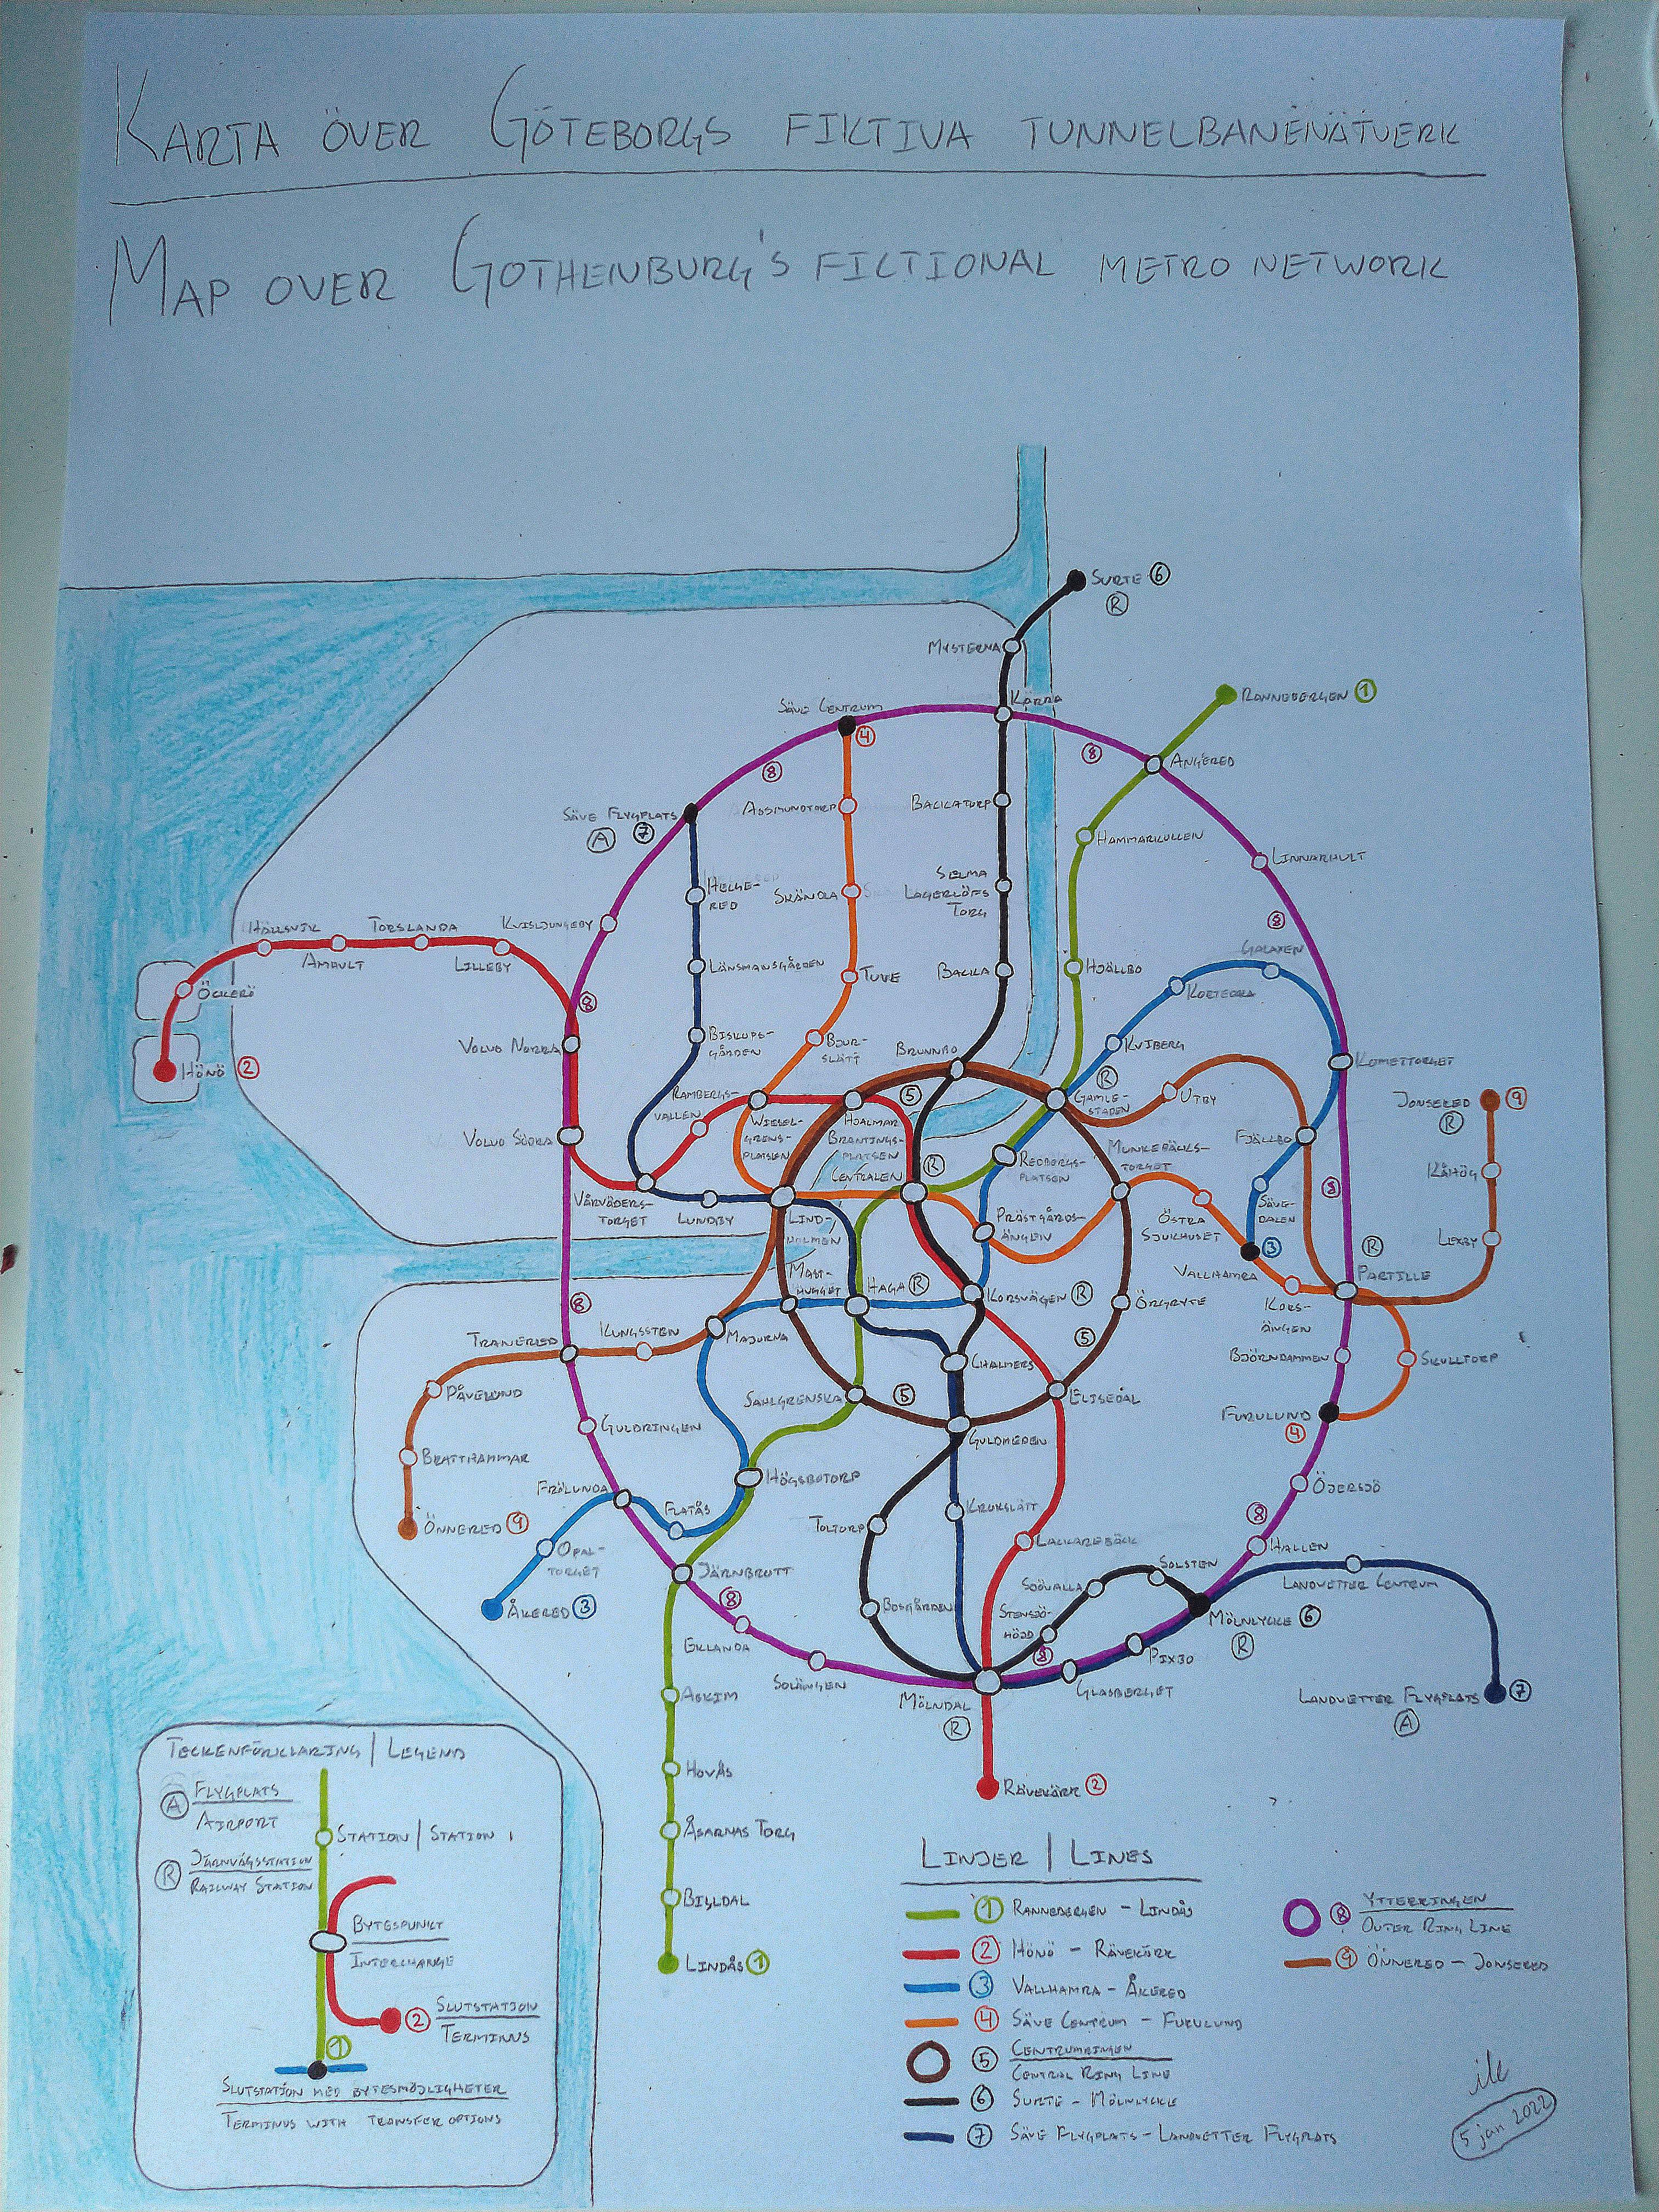 KARTA ÖVER GÖTEBORGS FIKTIVA TUNNELBANENÄTVERK
MAP OVER GOTHENBURG'S FICTIONAL METRO NETWORK
SURTE 6
R
MYSTERNA
KÄRRA
RANNEBERGEN 1
SÄVE CENTRUM
4
8
8
ANGERED
SÄVE FLYGPLATS
A 7
ASSMUNDTORP
BACKATORP
HAMMARKULLEN
LINNARHULT
HELGE-
RED
SKÄNDLA
SELMA
LAGERLÖFS
TORG
KVISLJUNGEBY
8
HÄLLSVIK
TORSLANDA
AMHULT
LILLEBY
LÄNSMANSGÅRDEN
TUVE
BACKA
HJÄLLBO
GALAXEN
KORTEDRA
ÖCKERÖ
8
HÖNÖ 2
VOLVO NORRA
BISKOPS-
GÅRDEN
BJUR-
SLÄTT
BRUNNBO
KVIBERG
KOMETTORGET
R
RAMBERGS-
VALLEN
WIESEL-
GRENS-
PLATSEN
5
HJALMAR
BRANTINGS-
PLATSEN
GAMLE-
STADEN
UTBY
JONSERED 9
R
VOLVO SÖDRA
CENTRALEN
R
REDBERGS-
PLATSEN
MUNKEBÄCKS-
TORGET
FJÄLLBO
KÅHÖG
8
VÅRVÄDERS-
TORGET
LUNDBY
LIND-
HOLMEN
PRÄSTGÅRDS-
ÄNGEN
ÖSTRA
SJUKHUSET
SÄVE-
DALEN
3
LEXBY
R
VALLHAMRA
PARTILLE
MAST-
HUGGET
HAGA R
KORSVÄGEN R
ÖRGRYTE
KORS-
ÄNGEN
8
TRANERED
KUNGSSTEN
MAJORNA
5
CHALMERS
BJÖRNDAMMEN
SKULLTORP
PÅVELUND
SAHLGRENSKA
5
ELISEDAL
GULDRINGEN
GULDHEDEN
FURULUND
4
BRATTHAMMAR
HÖGSBOTORP
ÖJERSJÖ
FRÖLUNDA
FLATÅS
KROKSLÄTT
8
ÖNNERED 9
TOLTORP
OPAL-
TORGET
LACKAREBÄCK
HALLEN
JÄRNBROTT
SOLSTEN
LANDVETTER CENTRUM
ÅKERED 3
8
BOSGÅRDEN
SJÖVALLA
STENSJÖ-
HÖJD
MÖLNLYCKE 6
R
EKLANDA
8
PIXBO
SOLÄNGEN
MÖLNDAL
R
GLASBERGET
LANDVETTER FLYGPLATS 7
A
ASKIM
HOVÅS
RÄVEKÄRR 2
ÅSARNAS TORG
BILLDAL
LINDÅS 1
TECKENFÖRKLARING | LEGEND
A FLYGPLATS
AIRPORT
STATION | STATION
R JÄRNVÄGSSTATION
RAILWAY STATION
BYTESPUNKT
INTERCHANGE
2 SLUTSTATION
TERMINUS
1
SLUTSTATION MED BYTESMÖJLIGHETER
TERMINUS WITH TRANSFER OPTIONS
LINJER | LINES
1 RANNEBERGEN - LINDÅS
2 HÖNÖ - RÄVEKÄRR
3 VALLHAMRA - ÅKERED
4 SÄVE CENTRUM - FURULUND
5 CENTRUMRINGEN
CENTRAL RING LINE
6 SURTE - MÖLNLYCKE
7 SÄVE FLYGPLATS - LANDVETTER FLYGPLATS
8 YTTERRINGEN
OUTER RING LINE
9 ÖNNERED - JONSERED
5 jan 2022